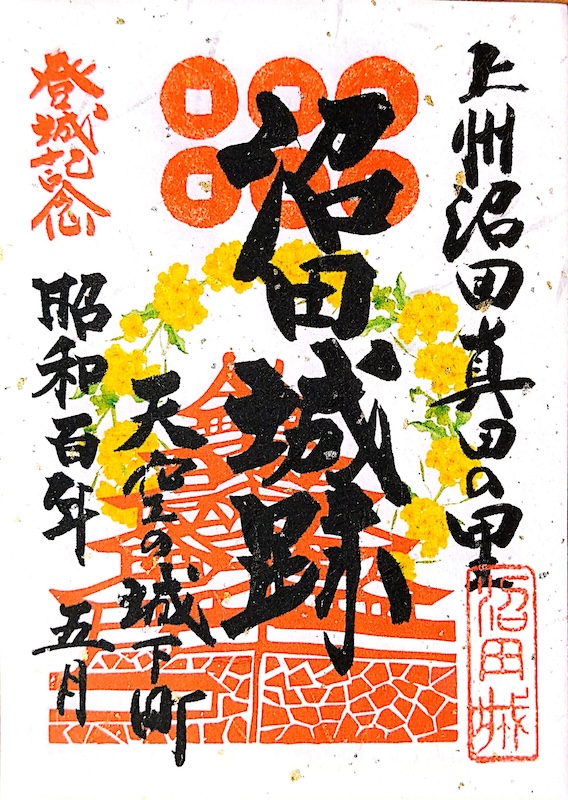 上州沼田真田の里
沼田城
沼田城跡
天空の城下町
登城記念
昭和百年 五月